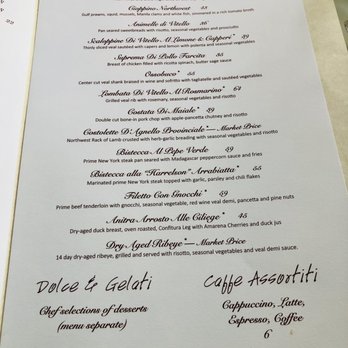 Cioppino Northwest 55
Gulf prawns, squid, mussels, Manila clams and white fish, simmered in a rich tomato broth
Animelle di Vitello 46
Pan seared sweetbreads with risotto, seasonal vegetables and prosciutto
Scaloppine Di Vitello Al Limone & Capperi* 49
Thinly sliced veal sautéed with capers and lemon with polenta and seasonal vegetables
Suprema Di Pollo Farcita 35
Breast of chicken filled with ricotta spinach, butter sage sauce
Ossobuco* 55
Center cut veal shank braised in wine and sofrito with tagliatelle and sautéed vegetables
Lombata Di Vitello Al Rosmarino* 64
Grilled veal rib with rosemary, seasonal vegetables and risotto
Costata Di Maiale* 49
Double cut bone-in pork chop with apple-pancetta chutney and risotto
Costolette D'Agnello Provinciale* — Market Price
Northwest Rack of Lamb crusted with herb-garlic breading with seasonal vegetables and risotto
Bistecca Al Pepe Verde 49
Prime New York steak pan seared with Madagascar peppercorn sauce and fries
Bistecca alla "Karrelson" Arrabiatta* 55
Marinated prime New York steak topped with garlic, parsley and chili flakes
Filetto Con Gnocchi* 49
Prime beef tenderloin with gnocchi, seasonal vegetable, red wine veal demi, pancetta and pine nuts
Anitra Arrosto Alle Ciliege* 45
Dry-aged duck breast, oven roasted, Confitura Leg with Amarena Cherries and duck jus
Dry Aged Ribeye* — Market Price
14 day dry-aged ribeye, grilled and served with risotto, seasonal vegetables and veal demi sauce.
Dolce & Gelati
Chef selections of desserts
(menu separate)
Caffe Assortiti
Cappuccino, Latte,
Espresso, Coffee
6